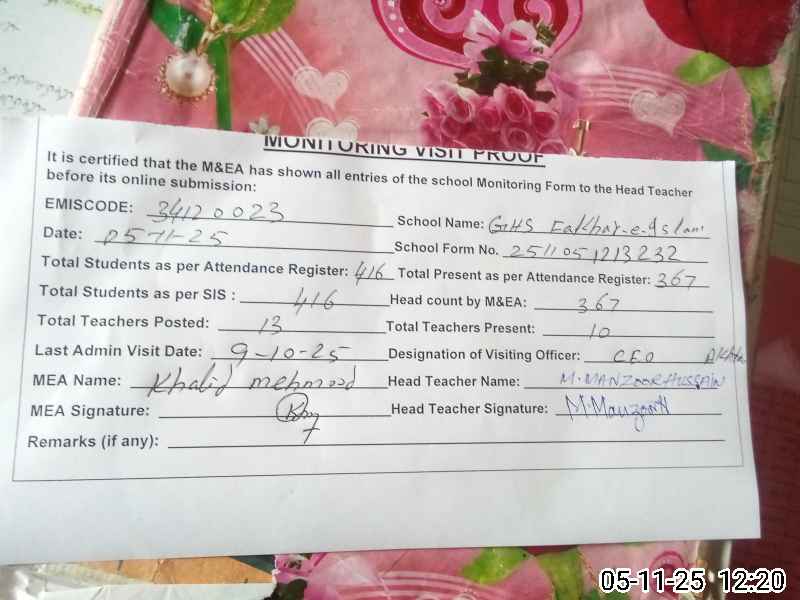 MONITORING VISIT PROOF
It is certified that the M&EA has shown all entries of the school Monitoring Form to the Head Teacher
before its online submission:
EMISCODE: 34120023 School Name: GHS Fakhar-e-Islam
Date: 05-11-25 School Form No. 2511051213232
Total Students as per Attendance Register: 416 Total Present as per Attendance Register: 367
Total Students as per SIS : 416 Head count by M&EA: 367
Total Teachers Posted: 13 Total Teachers Present: 10
Last Admin Visit Date: 9-10-25 Designation of Visiting Officer: CEO
MEA Name: Khalid mehmood Head Teacher Name: M. MANZOOR HUSSAIN
MEA Signature: Head Teacher Signature: M.ManzoorH
Remarks (if any):
05-11-25 12:20